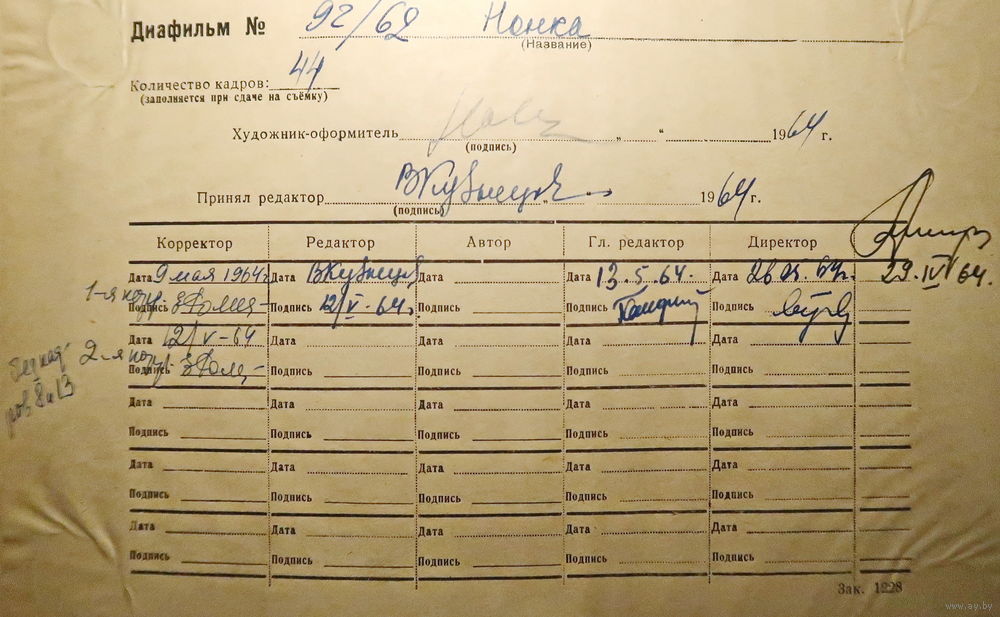 Диафильм № 92/62 Нонка
(Название)
Количество кадров: 44
(заполняется при сдаче на съёмку)
Художник-оформитель „ “ 1964 г.
(подпись)
Принял редактор ВКузнецов 1964 г.
(подпись)
Корректор Редактор Автор Гл. редактор Директор
Дата 9 мая 1964 г. Дата ВКузнецов Дата Дата 13.5.64. Дата 28 64 г. 29.IV 64.
1-я корр. Подпись Подпись 12/V-64. Подпись Подпись Подпись
Дата 12/V-64 Дата Дата Дата Дата
2-я корр. Подпись Подпись Подпись Подпись Подпись
8 и 13
Дата Дата Дата Дата Дата
Подпись Подпись Подпись Подпись Подпись
Дата Дата Дата Дата Дата
Подпись Подпись Подпись Подпись Подпись
Дата Дата Дата Дата Дата
Подпись Подпись Подпись Подпись Подпись
Зак. 1228
www.ay.by